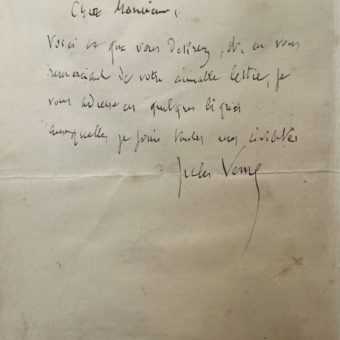 Cher Monsieur,
Voici ce que vous désirez, et, en vous
remerciant de votre aimable lettre, je
vous adresse ces quelques lignes
auxquelles je joins toutes mes civilités
Jules Verne